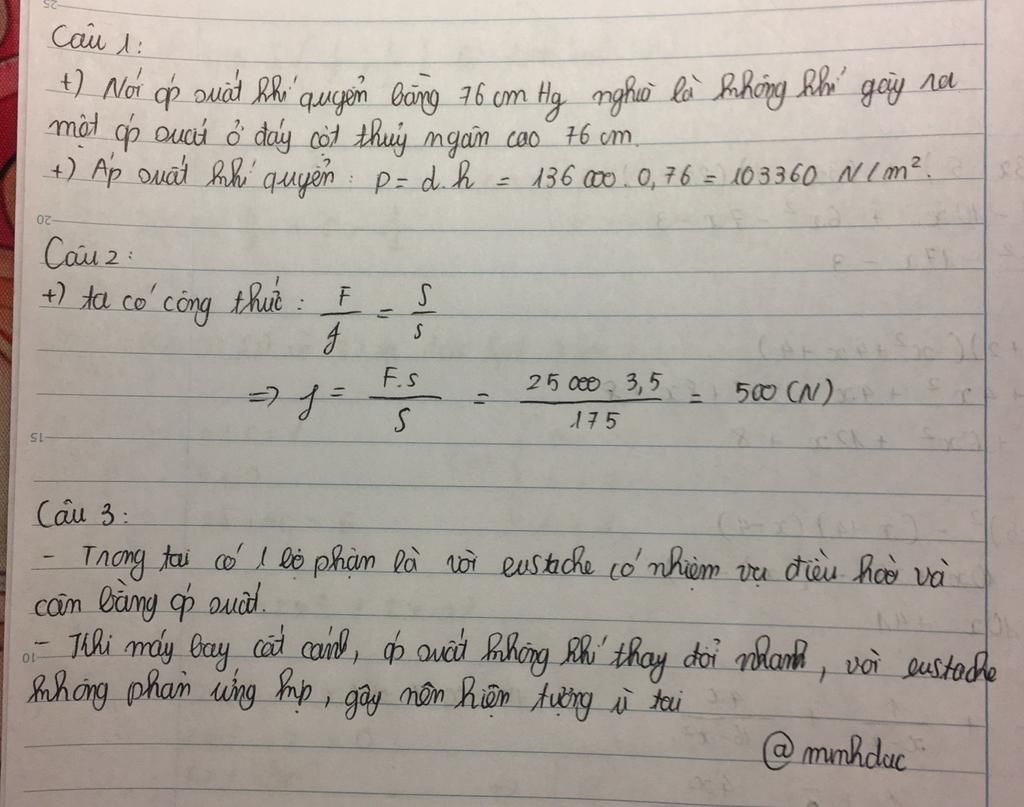 Câu 1:
+) Nói áp suất khí quyển bằng 76 cm Hg nghĩa là không khí gây ra
một áp suất ở đáy cột thuỷ ngân cao 76 cm.
+) Áp suất khí quyển: p = d.h = 136 000. 0,76 = 103360 N/m².
20
Câu 2:
+) ta có công thức: F/f = S/s
=> f = F.s/S = 25 000. 3,5/175 = 500 (N)
15
Câu 3:
- Trong tai có 1 bộ phận là vòi eustache có nhiệm vụ điều hoà và
cân bằng áp suất.
- Khi máy bay cất cánh, áp suất không khí thay đổi nhanh, vòi eustache
10
không phản ứng kịp, gây nên hiện tượng ù tai
@minhduc